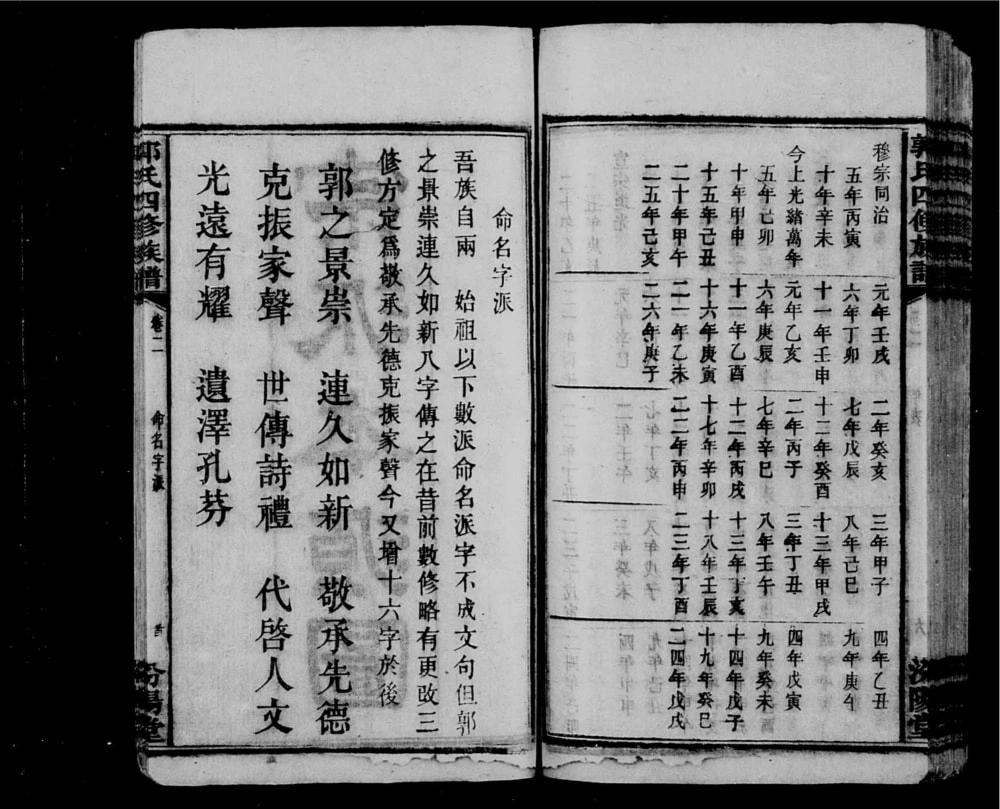 郭氏四修族譜
汾陽堂
穆宗同治 元年壬戌 二年癸亥 三年甲子 四年乙丑
五年丙寅 六年丁卯 七年戊辰 八年己巳 九年庚午
十年辛未 十一年壬申 十二年癸酉 十三年甲戌
今上光緒萬年 元年乙亥 二年丙子 三年丁丑 四年戊寅
五年己卯 六年庚辰 七年辛巳 八年壬午 九年癸未
十年甲申 十一年乙酉 十二年丙戌 十三年丁亥 十四年戊子
十五年己丑 十六年庚寅 十七年辛卯 十八年壬辰 十九年癸巳
二十年甲午 二一年乙未 二二年丙申 二三年丁酉 二四年戊戌
二五年己亥 二六年庚子
命名字派
吾族自兩 始祖以下數派命名派字不成文句但郭
之景崇連久如新八字傳之在昔前數修略有更改三
修方定爲敬承先德克振家聲今又增十六字於後
郭之景崇 連久如新 敬承先德
克振家聲 世傳詩禮 代啓人文
光遠有耀 遺澤孔芬
郭氏四修族譜 卷二 命名字派 汾陽堂